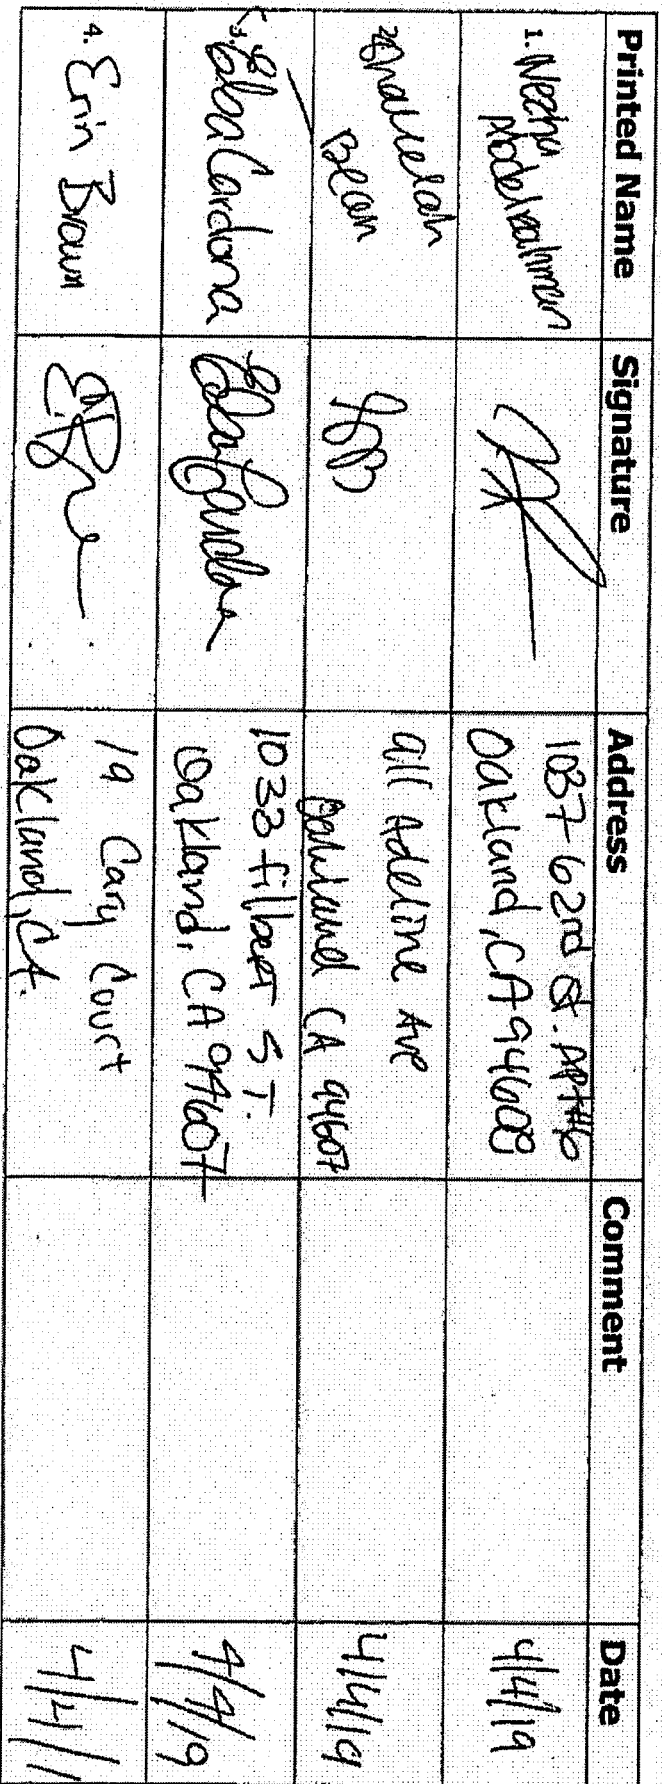 Printed Name Signature Address Comment Date
1. Nezha
Abdelrahman
1037 62nd St. APT#6
Oakland, CA 94608
4/4/19
2.
Bean
911 Adeline Ave
Oakland CA 94607
4/4/19
3. Elba Cardona
Elba Cardona
1033 filbert ST.
Oakland, CA 94607
4/4/19
4. Erin Brown
19 Cary Court
Oakland, CA.
4/4/1